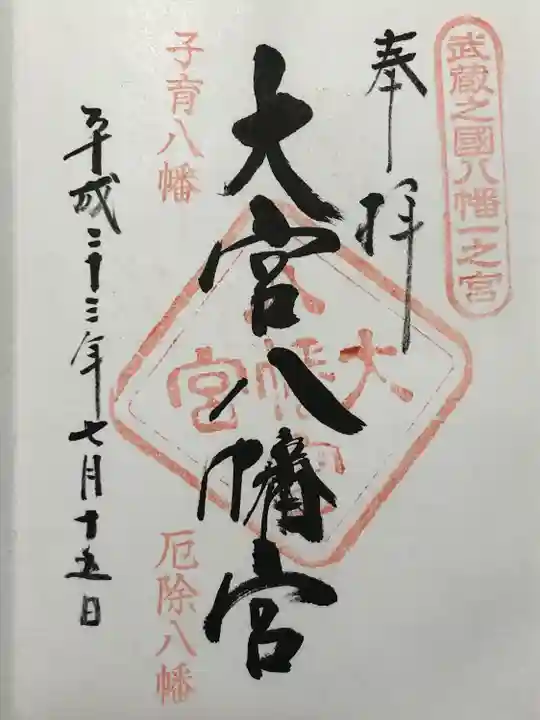 武蔵之國八幡一之宮
奉拝
大宮八幡宮
大宮
八幡宮
子育八幡
厄除八幡
平成二十三年七月十五日